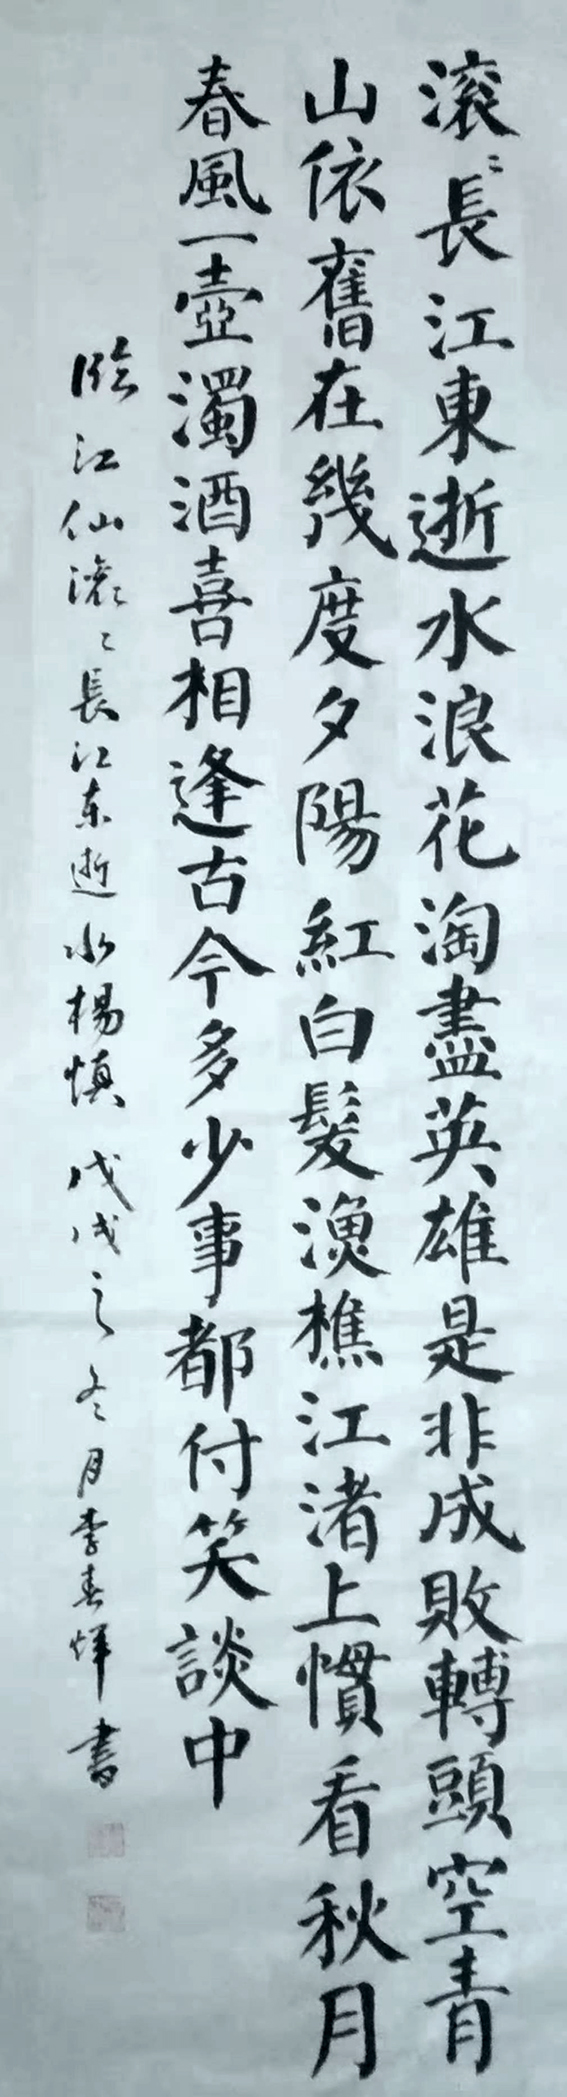 滚〻長江東逝水浪花淘盡英雄是非成敗轉頭空青
山依舊在幾度夕陽紅白髮漁樵江渚上慣看秋月
春風一壺濁酒喜相逢古今多少事都付笑談中
臨江仙滚〻長江东逝水楊慎 戊戌之冬月李春輝書